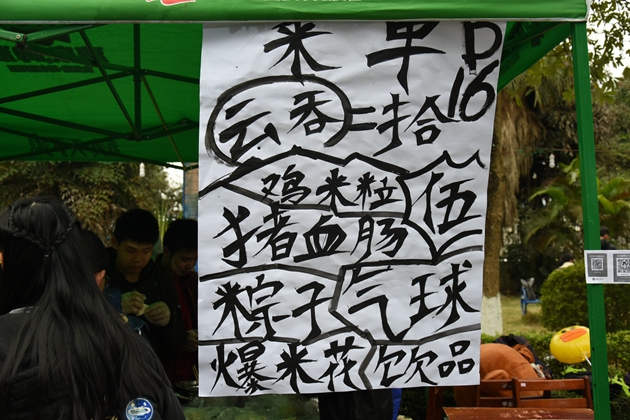 菜单 D16
云吞=拾
鸡米粒 伍
猪血肠
粽子 气球
爆米花 饮品